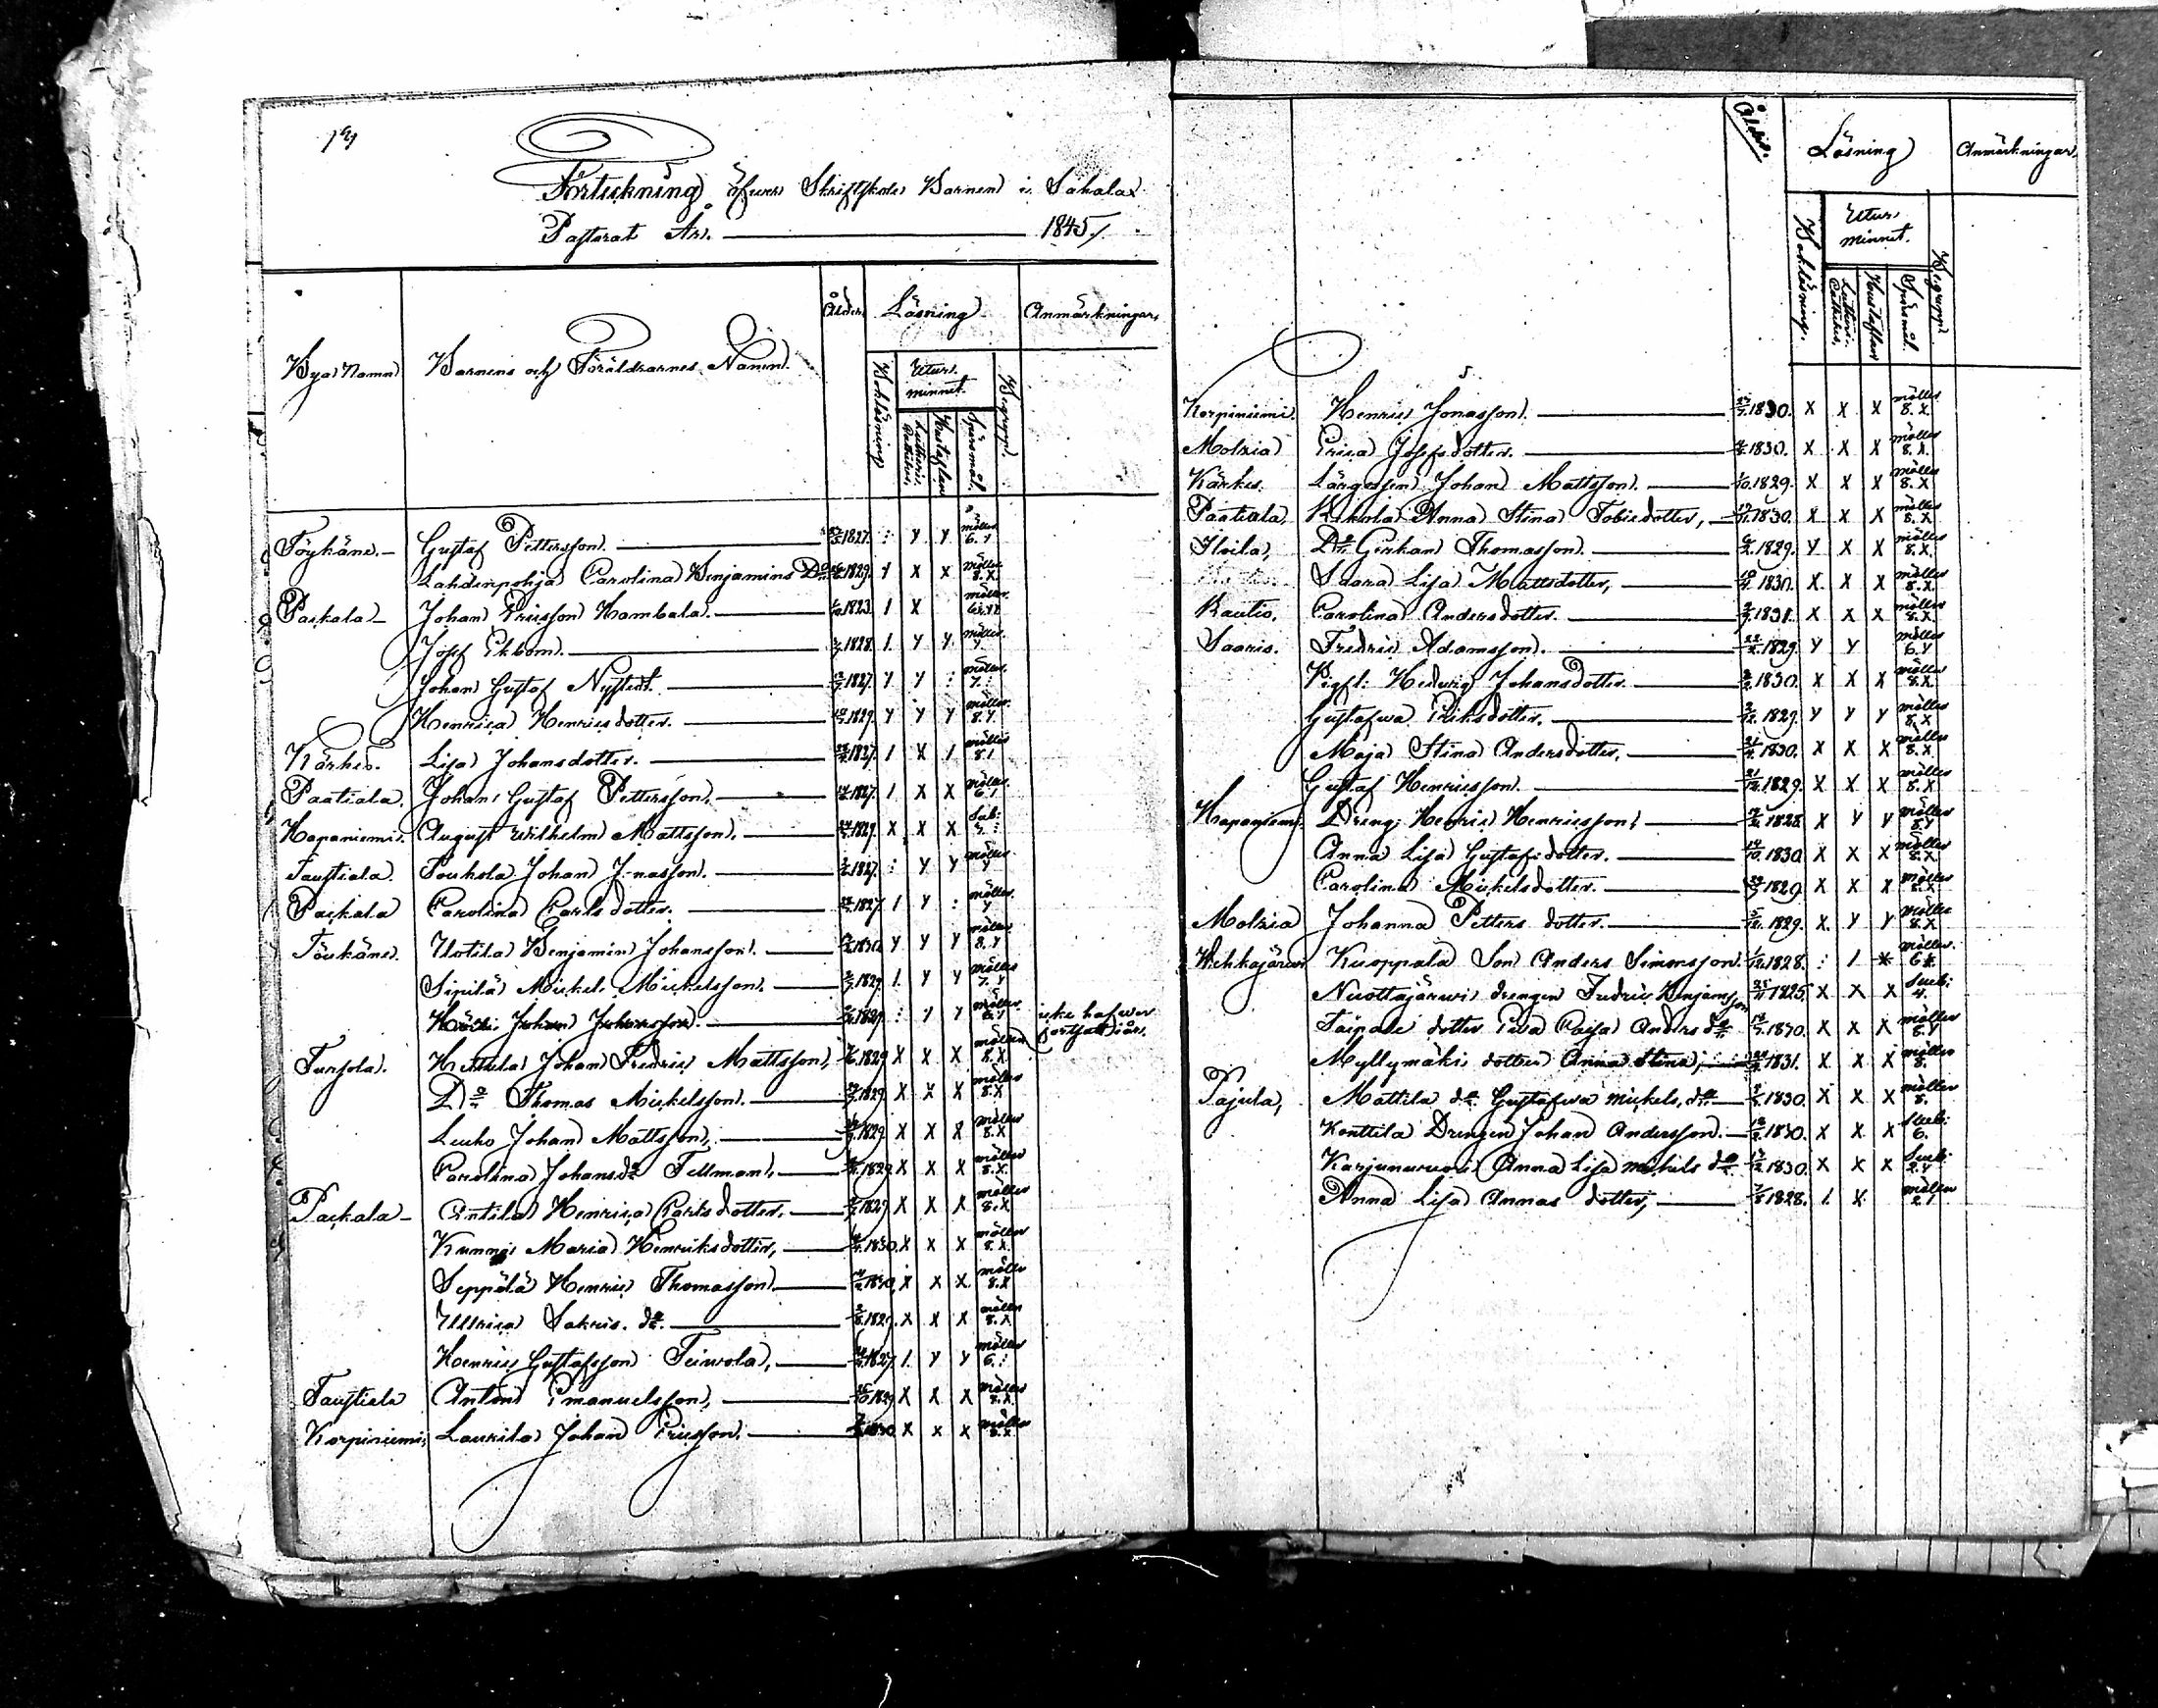 Förteckning öfwer Skriftskole Barnen i Sahalax
Pastorat År. 1845.
Bya Namn Barnens och Föräldrarnes Namn. Ålder. Läsning Anmärkningar.
Bokläsning. Utur minnet. Begrepp.
Lutheri Cathches. Hustaflan Spörsmål.
Töykäne. Gustaf Pettersson. 1827. : y y möller 6. y
Lahdenpohja Carolina Benjamins Dr 1829. y x x möller 8. x
Packala Johan Ericsson Hambala. 1823. 1 x möller
Josef Ekbom. 1828. 1. y y. möller. y.
Johan Gustaf Nystedt. 1827. y y : möller. 7. :
Henrica Henricsdotter. 1829. y y y möller. 8. y.
Kärkes. Lisa Johansdotter. 1827. 1 x 1 möller 8. 1
Paatiala. Johan Gustaf Pettersson. 1827. 1 x x möller. 6. 1
Hapaniemi. August Wilhelm Mattsson. 1829. x x x Sub:
Taustiala. Poukola Johan Jonasson. 1827. : y y möller y
Packala Carolina Carls dotter. 1827. 1 y : möller. y
Töukäne. Utotila Benjamin Johansson. 1830 y y y möller 8. y
Sipilä Mickel Mickelsson. 1829. 1. y y möller 7. y
Johan Johansson. 1829. : y y möller 6. y icke hafwer fortsatt i år.
Tursola. Hettula Johan Fredric Mattsson, 1829 x x x möller 8. x
Do Thomas Mickelsson. 1829 x x x möller 8. x
Leuho Johan Mattsson, 1829 x x x möller 8. x
Carolina Johans dr Tellman. 1829 x x x möller 8. x
Packala Antila Henrica Carls dotter. 1829 x x x möller 8. x
Maria Henriksdotter, 1830. x x x möller 8. x
Seppälä Henric Thomasson 1830, x x x möller 8. x
Ullrica Sakris. dr. 1829. x x x möller 8. x
Henric Gustafsson Teiwola, 1827 1. y y möller 6. :
Taustiala Anton Emanuelsson, 1829 x x x möller 8. x
Korpiniemi, Laurila Johan Ericsson. 1830 x x x möller 8. x
Ålder. Läsning Anmärkningar.
Bokläsning. Utur minnet. Begrepp.
Lutheri Cathches. Hustaflan Spörsmål
Korpiniemi. Henric Jonasson. 1830. x x x möller 8. x
Molzia Erica Josefsdotter. 1830. x x x möller 8. x
Kärkes. Johan Mattsson. 1829. x x x möller 8. x
Paatiala, Rekola Anna Stina Tobiedotter, 1830. x x x möller 8. x
Iloila, Do Gerhan Thomasson. 1829. y x x möller 8. x
Saara Lisa Mattsdotter, 1830. x x x möller 8. x
Rautio. Carolina Andersdotter. 1831. x x x möller 8. x
Saaris. Fredric Adamsson. 1829. y y möller 6. y
Pigfl: Hedwig Johansdotter. 1830. x x x möller 8. x
Gustafwa Eriksdotter. 1829. y y y möller 8. x
Maja Stina Andersdotter, 1830. x x x möller 8. x
Gustaf Henricsson. 1829. x x x möller 8. x
Hapaniemi. Dreng: Henric Henricsson, 1828 x y y möller 8. y
Anna Lisa Gustafsdotter. 1830 x x x möller 8. x
Carolina Mickelsdotter. 1829 x x x möller 8. x
Molzia Johanna Petters dotter. 1829. x. y y möller 8. x
Wehkajärwi Kuoppala Son Anders Simonsson. 1828. : 1 möller. 6
Nuottajärwi drengen Fredric Benjamsson 1825. x x x Sueb: 4.
Taipale dotter Ewa Caisa Anders dr 1830. x x x möller 8. y
Myllymäki dotter Anna Stina, 1831. x x x möller 8.
Pajula, Mattila dr. Gustafwa mickels, dr 1830. x x x möller 8.
Konttila Drengen Johan Andersson. 1830. x x x Sueb: 6.
Karjunwuori Anna Lisa mickels dr 1830. x x x Sueb: 2. y
Anna Lisa Annas dotter, 1828. 1. x möller 2. 1